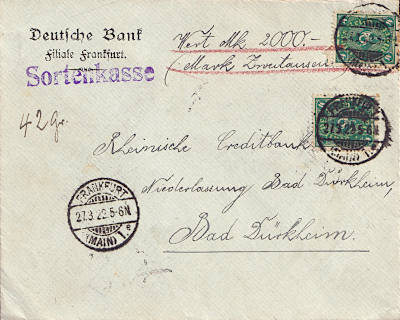 Deutsche Bank
Filiale Frankfurt.
Sortenkasse
Wert Mk 2000.-
(Mark Zweitausend
42 gr.
Rheinische Creditbank
Niederlassung Bad Dürkheim,
Bad Dürkheim.
FRANKFURT
27.3.23.5-6N.
(MAIN) 1.e
27.3.23.5-6N
(MAIN) 1.